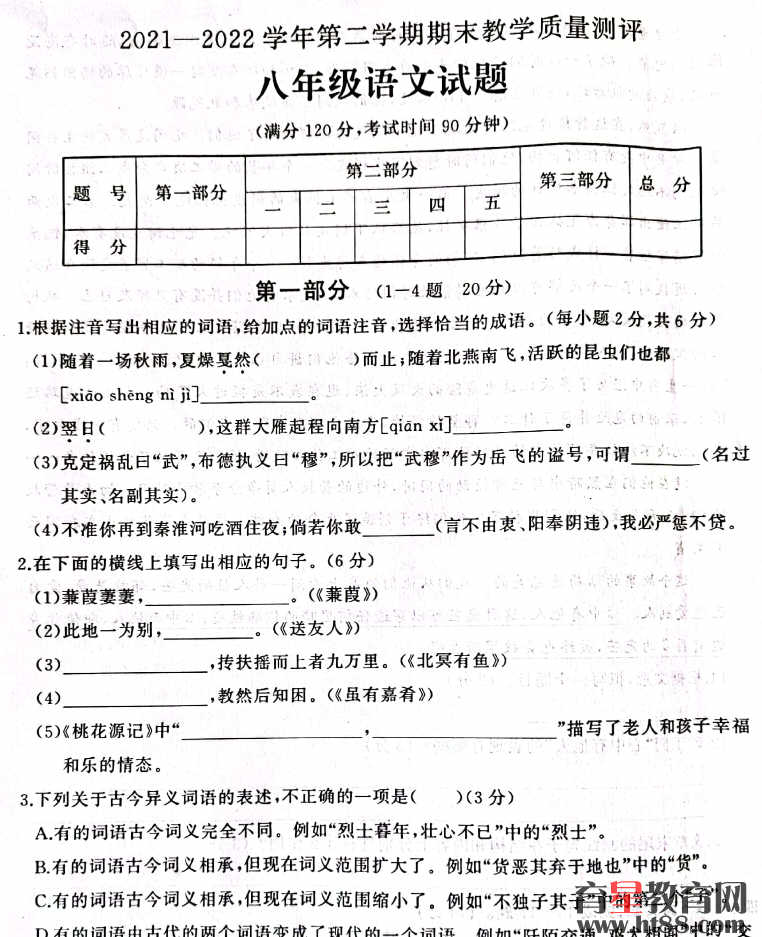 2021—2022学年第二学期期末教学质量测评
八年级语文试题
(满分120分,考试时间90分钟)
题 号 第一部分 第二部分 第三部分 总 分
一 二 三 四 五
得 分
第一部分 (1—4题 20分)
1.根据注音写出相应的词语,给加点的词语注音,选择恰当的成语。(每小题2分,共6分)
(1)随着一场秋雨,夏燥戛然( )而止;随着北燕南飞,活跃的昆虫们也都
[xiāo shēng nì jì]__________。
(2)翌日( ),这群大雁起程向南方[qiān xǐ]__________。
(3)克定祸乱曰“武”,布德执义曰“穆”,所以把“武穆”作为岳飞的谥号,可谓______(名过
其实、名副其实)。
(4)不准你再到秦淮河吃酒住夜;倘若你敢______(言不由衷、阳奉阴违),我必严惩不贷。
2.在下面的横线上填写出相应的句子。(6分)
(1)蒹葭萋萋,____________。(《蒹葭》)
(2)此地一为别,________。(《送友人》)
(3)____________,抟扶摇而上者九万里。(《北冥有鱼》)
(4)____________,教然后知困。(《虽有嘉肴》)
(5)《桃花源记》中“______________,______________”描写了老人和孩子幸福
和乐的情态。
3.下列关于古今异义词语的表述,不正确的一项是( )(3分)
A.有的词语古今词义完全不同。例如“烈士暮年,壮心不已”中的“烈士”。
B.有的词语古今词义相承,但现在词义范围扩大了。例如“货恶其弃于地也”中的“货”。
C.有的词语古今词义相承,但现在词义范围缩小了。例如“不独子其子”中的第一个“子”。
D.有的词语由古代的两个词语变成了现代的一个词语。例如“阡陌交通,
育星教育网
www.ht88.com